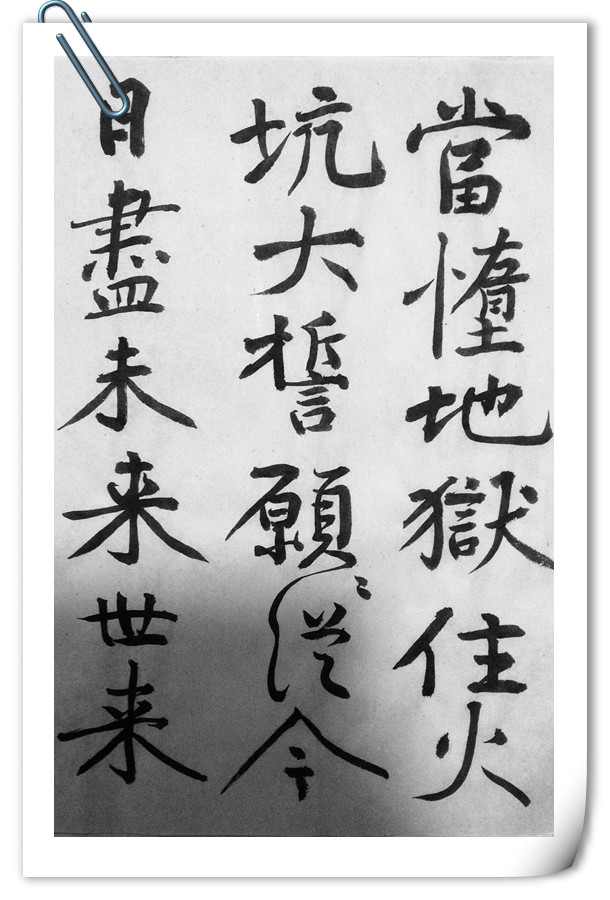 當墮地獄住火
坑大誓願〻從今
日盡未来世来